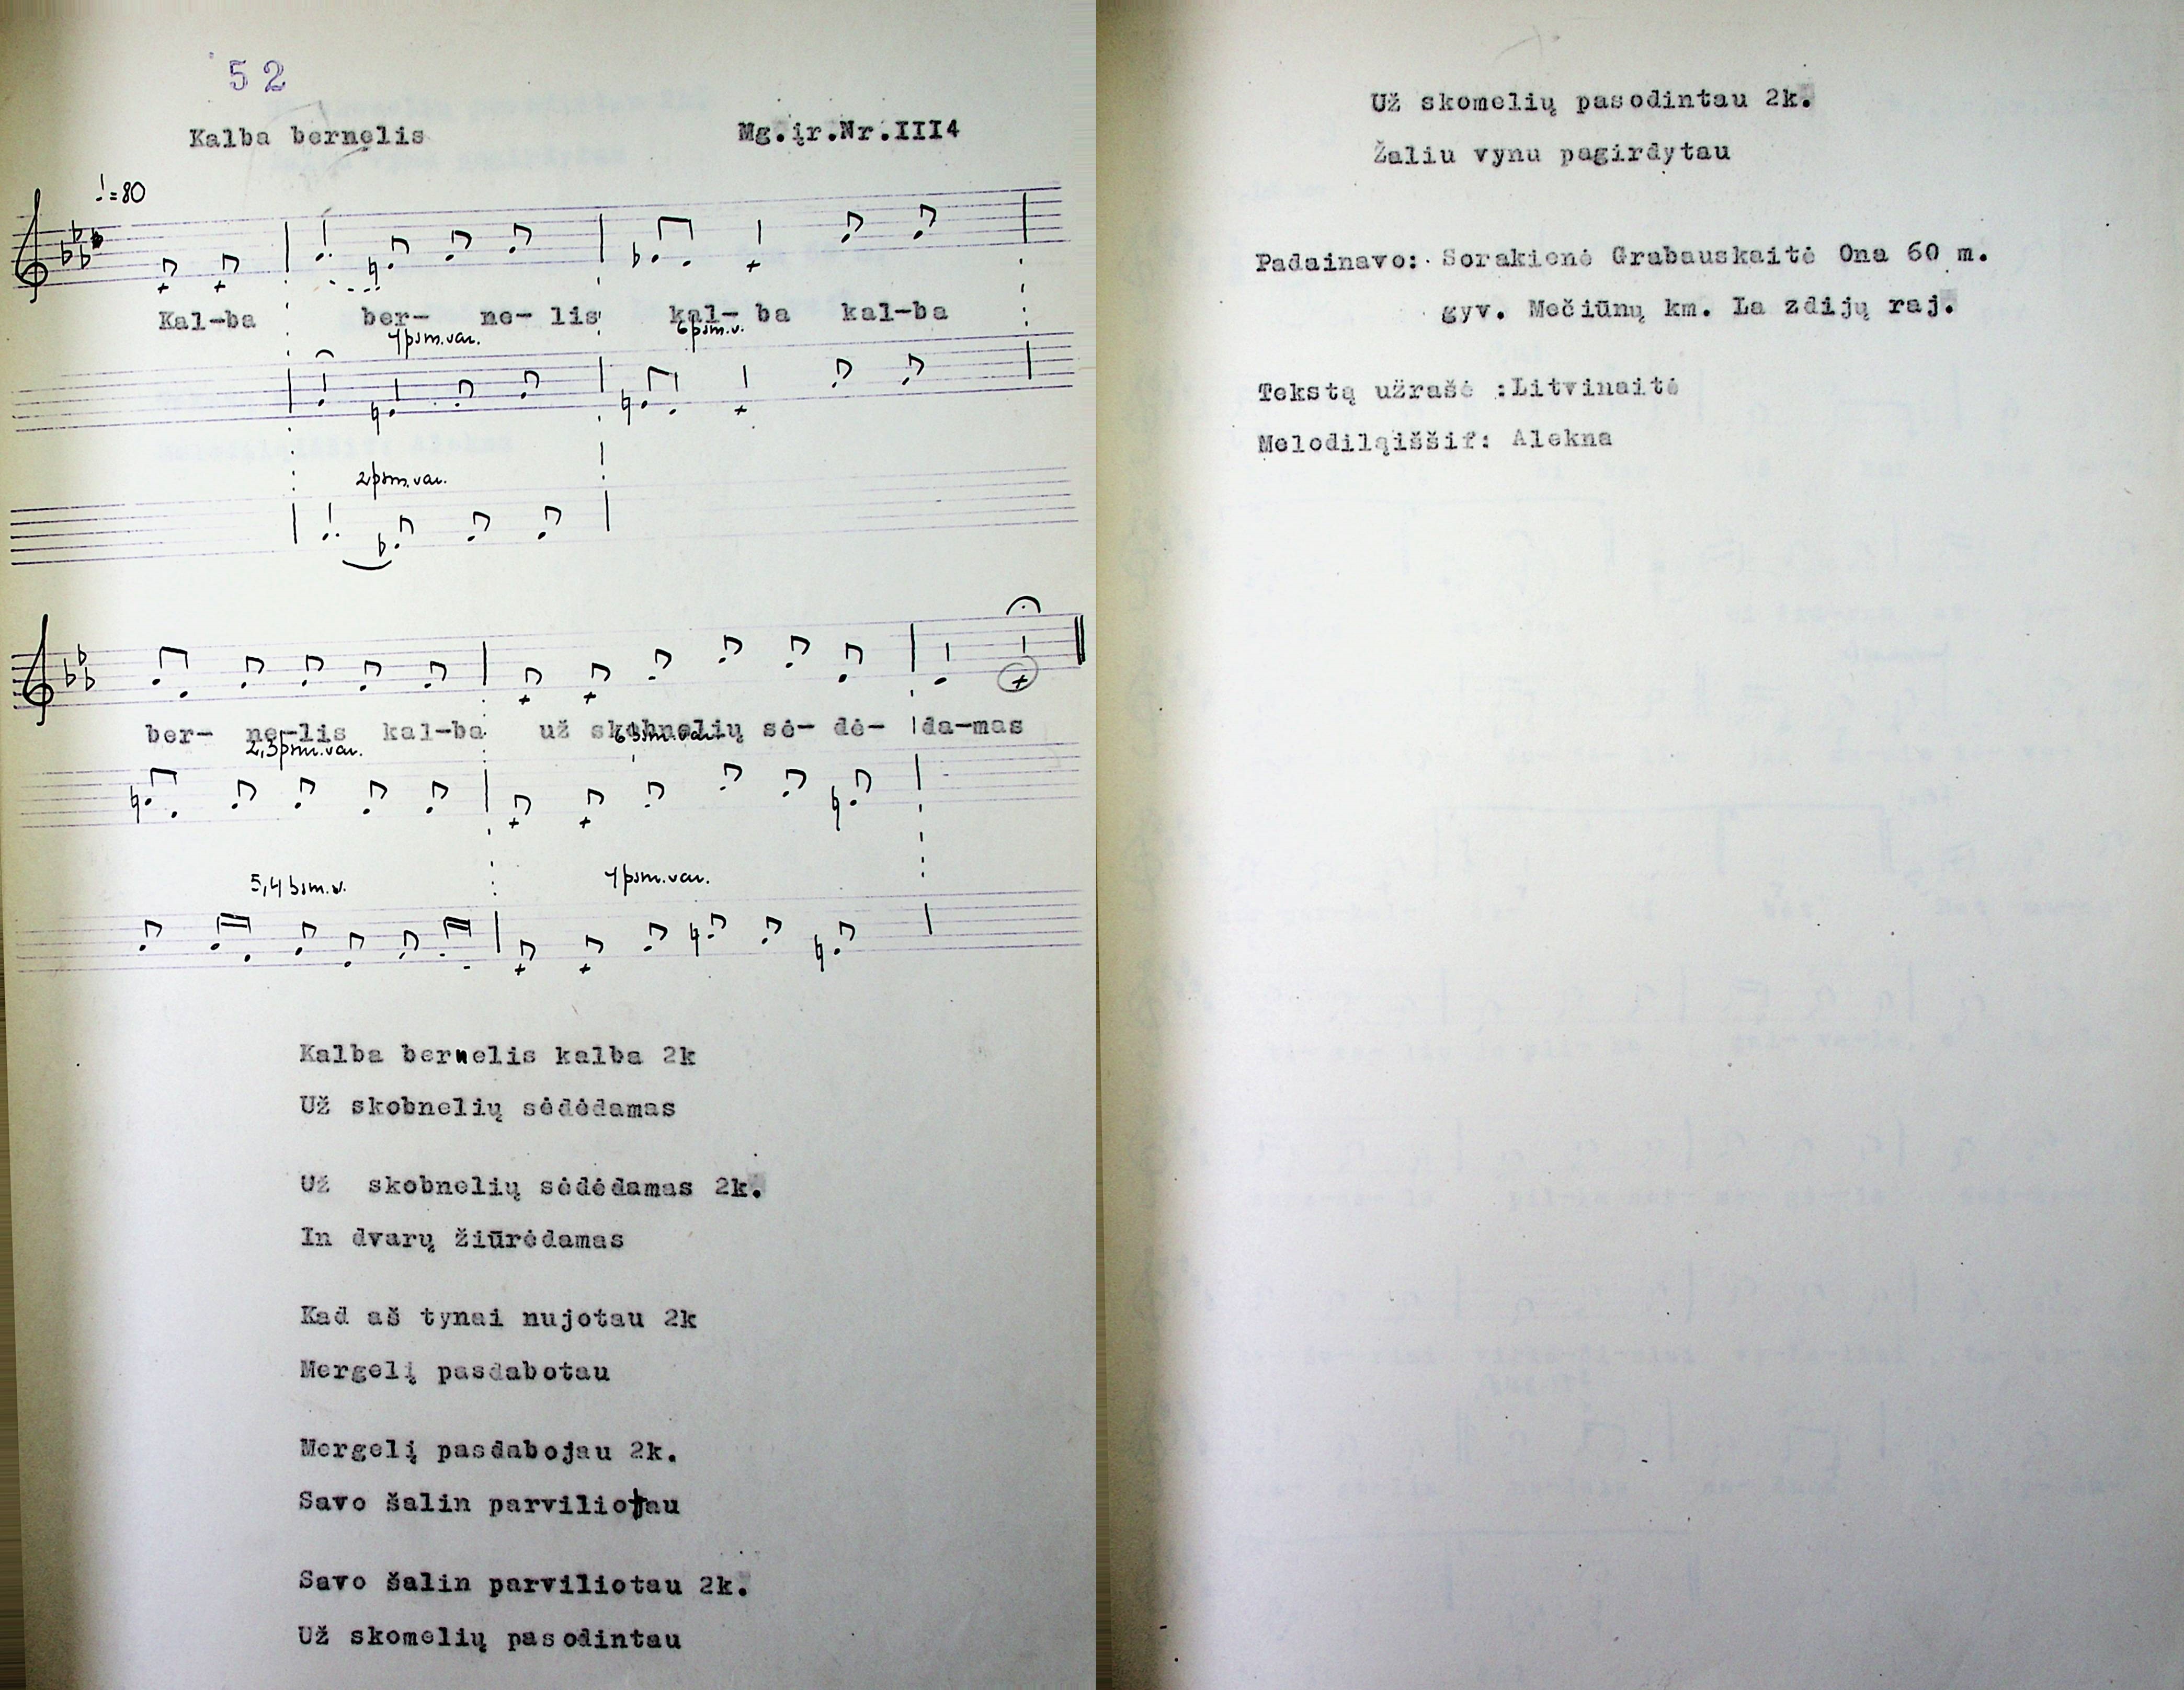 52
Kalba bernelis Mg.įr.Nr.III4
=80
Kal-ba ber- ne- lis kal- ba kal-ba
1 psm.var. 6 psm.v.
2 psm.var.
ber- ne-lis kal-ba už skobnelių sė- dė- da-mas
2,3 psm.var. 6 psm.var.
5,4 psm.v. 1 psm.var.
Kalba bernelis kalba 2k
Už skobnelių sėdėdamas
Už skobnelių sėdėdamas 2k.
In dvarų žiūrėdamas
Kad aš tynai nujotau 2k
Mergelį pasdabotau
Mergelį pasdabojau 2k.
Savo šalin parviliotau
Savo šalin parviliotau 2k.
Už skomelių pasodintau
Už skomelių pasodintau 2k.
Žaliu vynu pagirdytau
Padainavo: Sorakienė Grabauskaitė Ona 60 m.
gyv. Mečiūnų km. La zdijų raj.
Tekstą užrašė :Litvinaitė
Melodiląiššif: Alekna